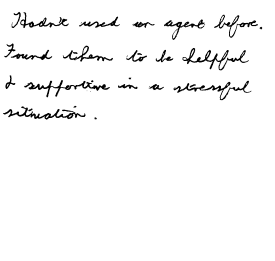 Hadn't used an agent before.
Found them to be helpful
& supportive in a stressful
situation.